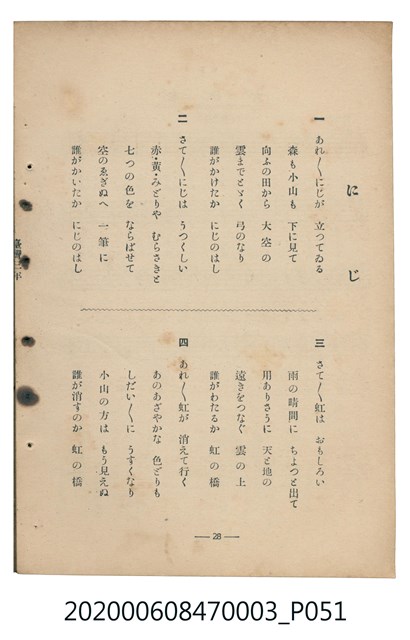 にじ
一 あれ〱にじが 立つてゐる
森も小山も 下に見て
向ふの田から 大空の
雲までとゞく 弓のなり
誰がかけたか にじのはし
二 さて〱にじは うつくしい
赤・黄・みどりや むらさきと
七つの色を ならばせて
空のゑぎぬへ 一筆に
誰がかいたか にじのはし
三 さて〱虹は おもしろい
雨の晴間に ちよつと出て
用ありさうに 天と地の
遠きをつなぐ 雲の上
誰がわたるか 虹の橋
四 あれ〱虹が 消えて行く
あのあざやかな 色どりも
しだい〱に うすくなり
小山の方は もう見えぬ
誰が消すのか 虹の橋
— 28 —
202000608470003_P051